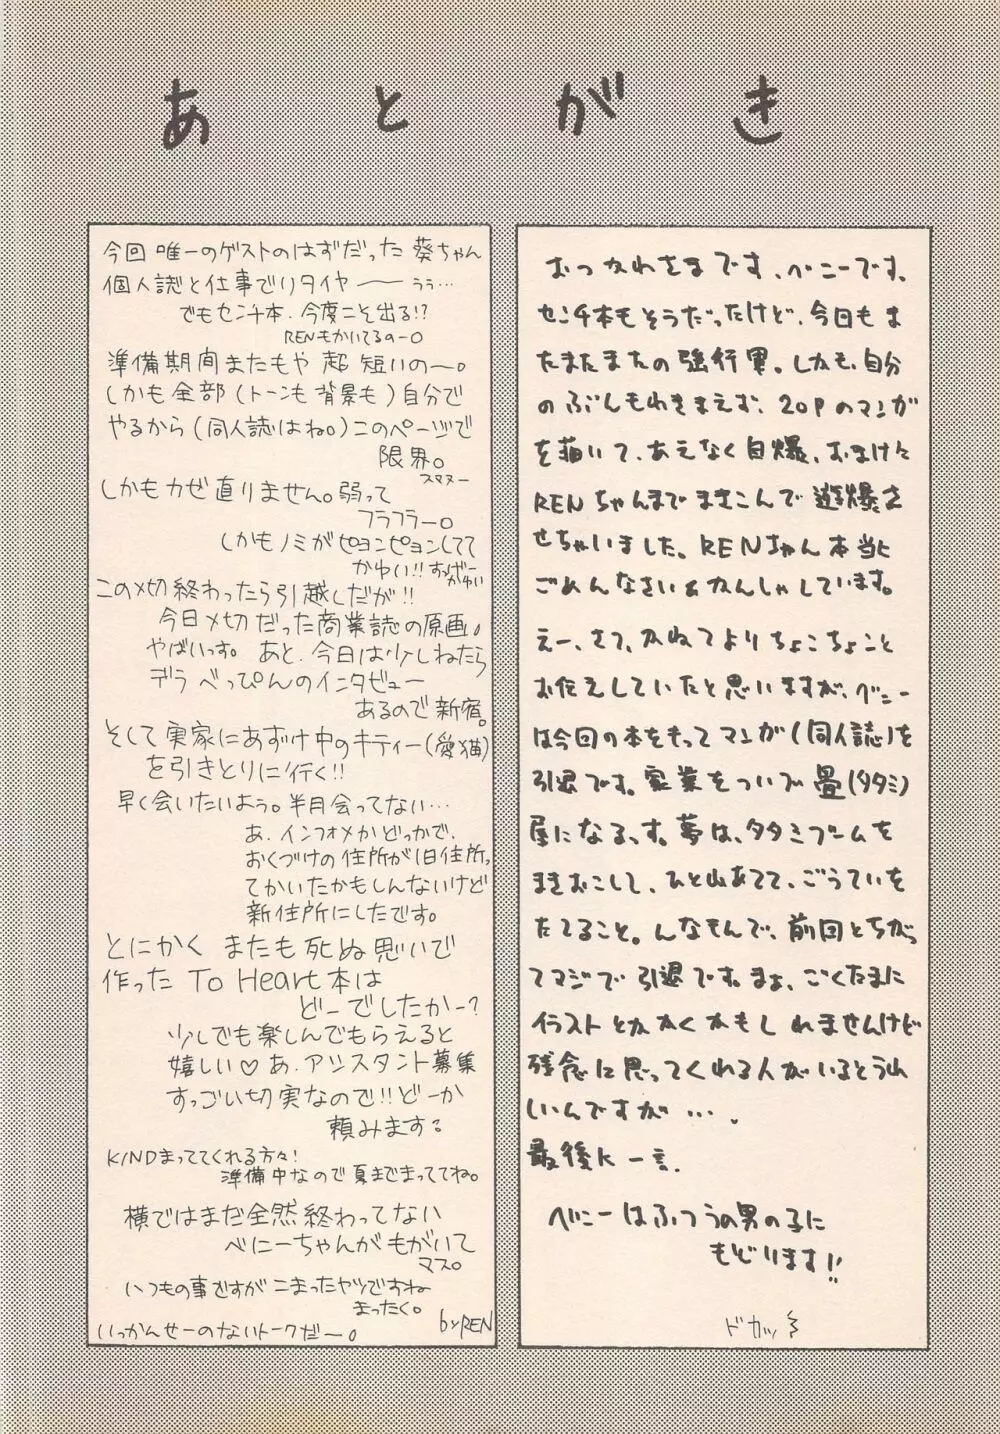 あとがき
今回 唯一のゲストのはずだった 葵ちゃん
個人誌と仕事でリタイヤ── ぅぅ…
でもセンチ本、今度こそ出る!?
RENもかいてるのー。
準備期間またもや 超 短いの〜。
しかも全部(トーンも 背景も)自分で
やるから(同人誌はね。)このページで
限界。
スマヌー
しかもカゼ直りません。弱って
フラフラー。
しかもノミがピョンピョンしてて
かゆい!!すんげーかゆい
この〆切終わったら引越しだが!!
今日〆切だった商業誌の原画。
やばいっす。あと、今日は少しねたら
デラべっぴんのインタビュー
あるので新宿。
そして実家にあずけ中のキティー(愛猫)
を引きとりに行く!!
早く会いたいよう。半月会ってない…
あ、インフォメかどっかで、
おくづけの住所が旧住所っ
てかいたかもしんないけど
新住所にしたです。
とにかく またも 死ぬ思いで
作った To Heart本は
どーでしたかー?
少しでも楽しんでもらえると
嬉しい♡ あ、アシスタント募集
すっごい切実なので!!どーか
頼みます。
KINDまっててくれる方々!
準備中なので夏までまっててね。
横ではまだ全然終わってない
べにーちゃんがもがいて
マス。
いつもの事ですがこまったヤツですね
まったく。
いっかんせーのないトークだ〜。
by REN
おつかれさまです、べニーです。
センチ本もそうだったけど、今回もま
たまたまたの強行軍。しかも、自分
のぶんもわきまえず、20Pのマンガ
を描いて、あえなく自爆、おまけに
RENちゃんまでまきこんで誘爆さ
せちゃいました。RENちゃん本当に
ごめんなさい&かんしゃしています。
えー、さて、かねてよりちょこちょこと
お伝えしていたと思いますが、べニー
は今回の本をもってマンガ(同人誌)を
引退です。家業をついで畳(タタミ)
屋になるっす。夢は、タタミブームを
まきおこして、ひと山あてて、ごうていを
たてること。んなもんで、前回とちがっ
てマジで引退です。まぁ、ごくたまに
イラストとかかくかもしれませんけど
残念に思ってくれる人がいるとうれ
しいんですが…。
最後に一言。
べにーはふつうの男の子に
もどります!!
ドカッ